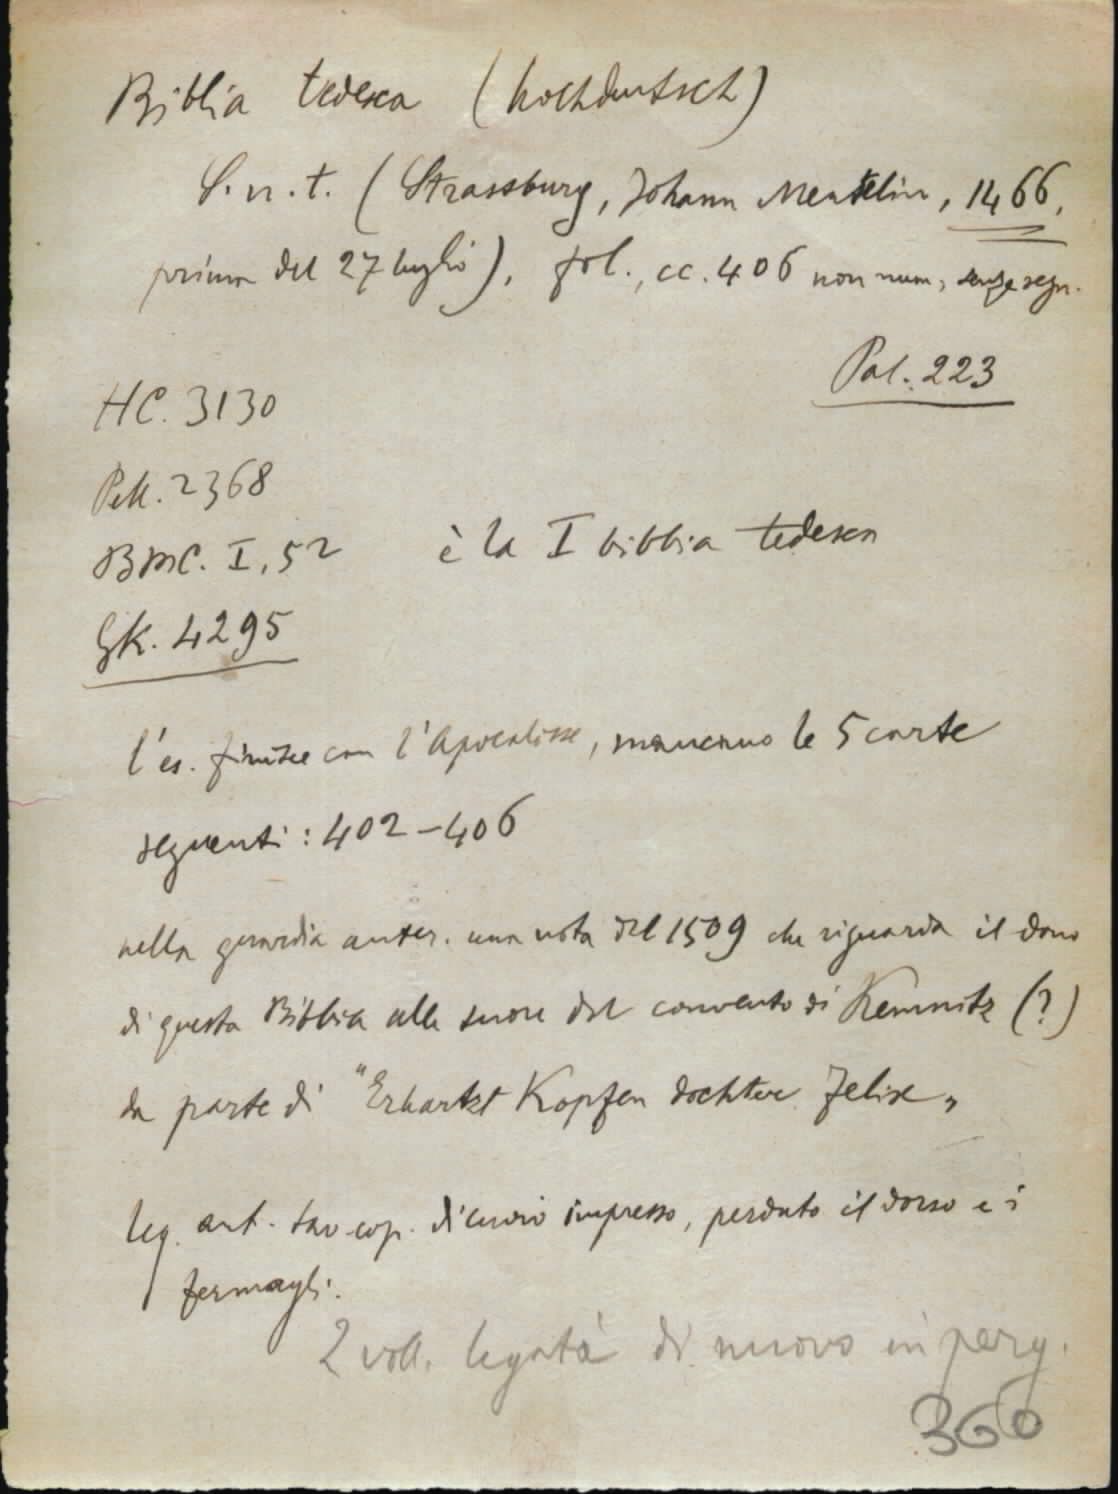 Biblia tedesca (hochdeutsch)
S. n. t. (Strassburg, Johann Mentelin, 1466,
prima del 27 luglio), fol., cc. 406 non num, senza segn.
Pal. 223
HC. 3130
Pell. 2368
BMC. I, 52
è la I bibbia tedesca
GK. 4295
l'es. finisce con l'Apocalisse, mancano le 5 carte
seguenti: 402-406
nella guardia anter. una nota del 1509 che riguarda il dono
di questa Bibbia alle suore del convento di Kemnitz (?)
da parte di "Erhartzt Kopfen dochter Felise"
leg. ant. tav. cop. di cuoio impresso, perduto il dorso e i
fermagli.
2 voll. legata di nuovo in perg.
360